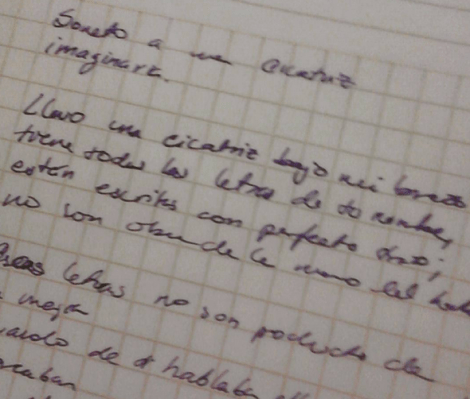 Soneto a una cicatriz
imaginaria.
Llevo una cicatriz bajo mi brazo
tiene todas las letras de tu nombre,
están escritas con perfecto trazo;
no son obra de la mano del
letras no son producto de
mejor
de hablaba